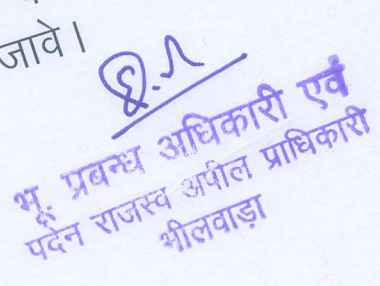 जावे।
भू. प्रबन्ध अधिकारी एवं
पदेन राजस्व अपील प्राधिकारी
भीलवाड़ा